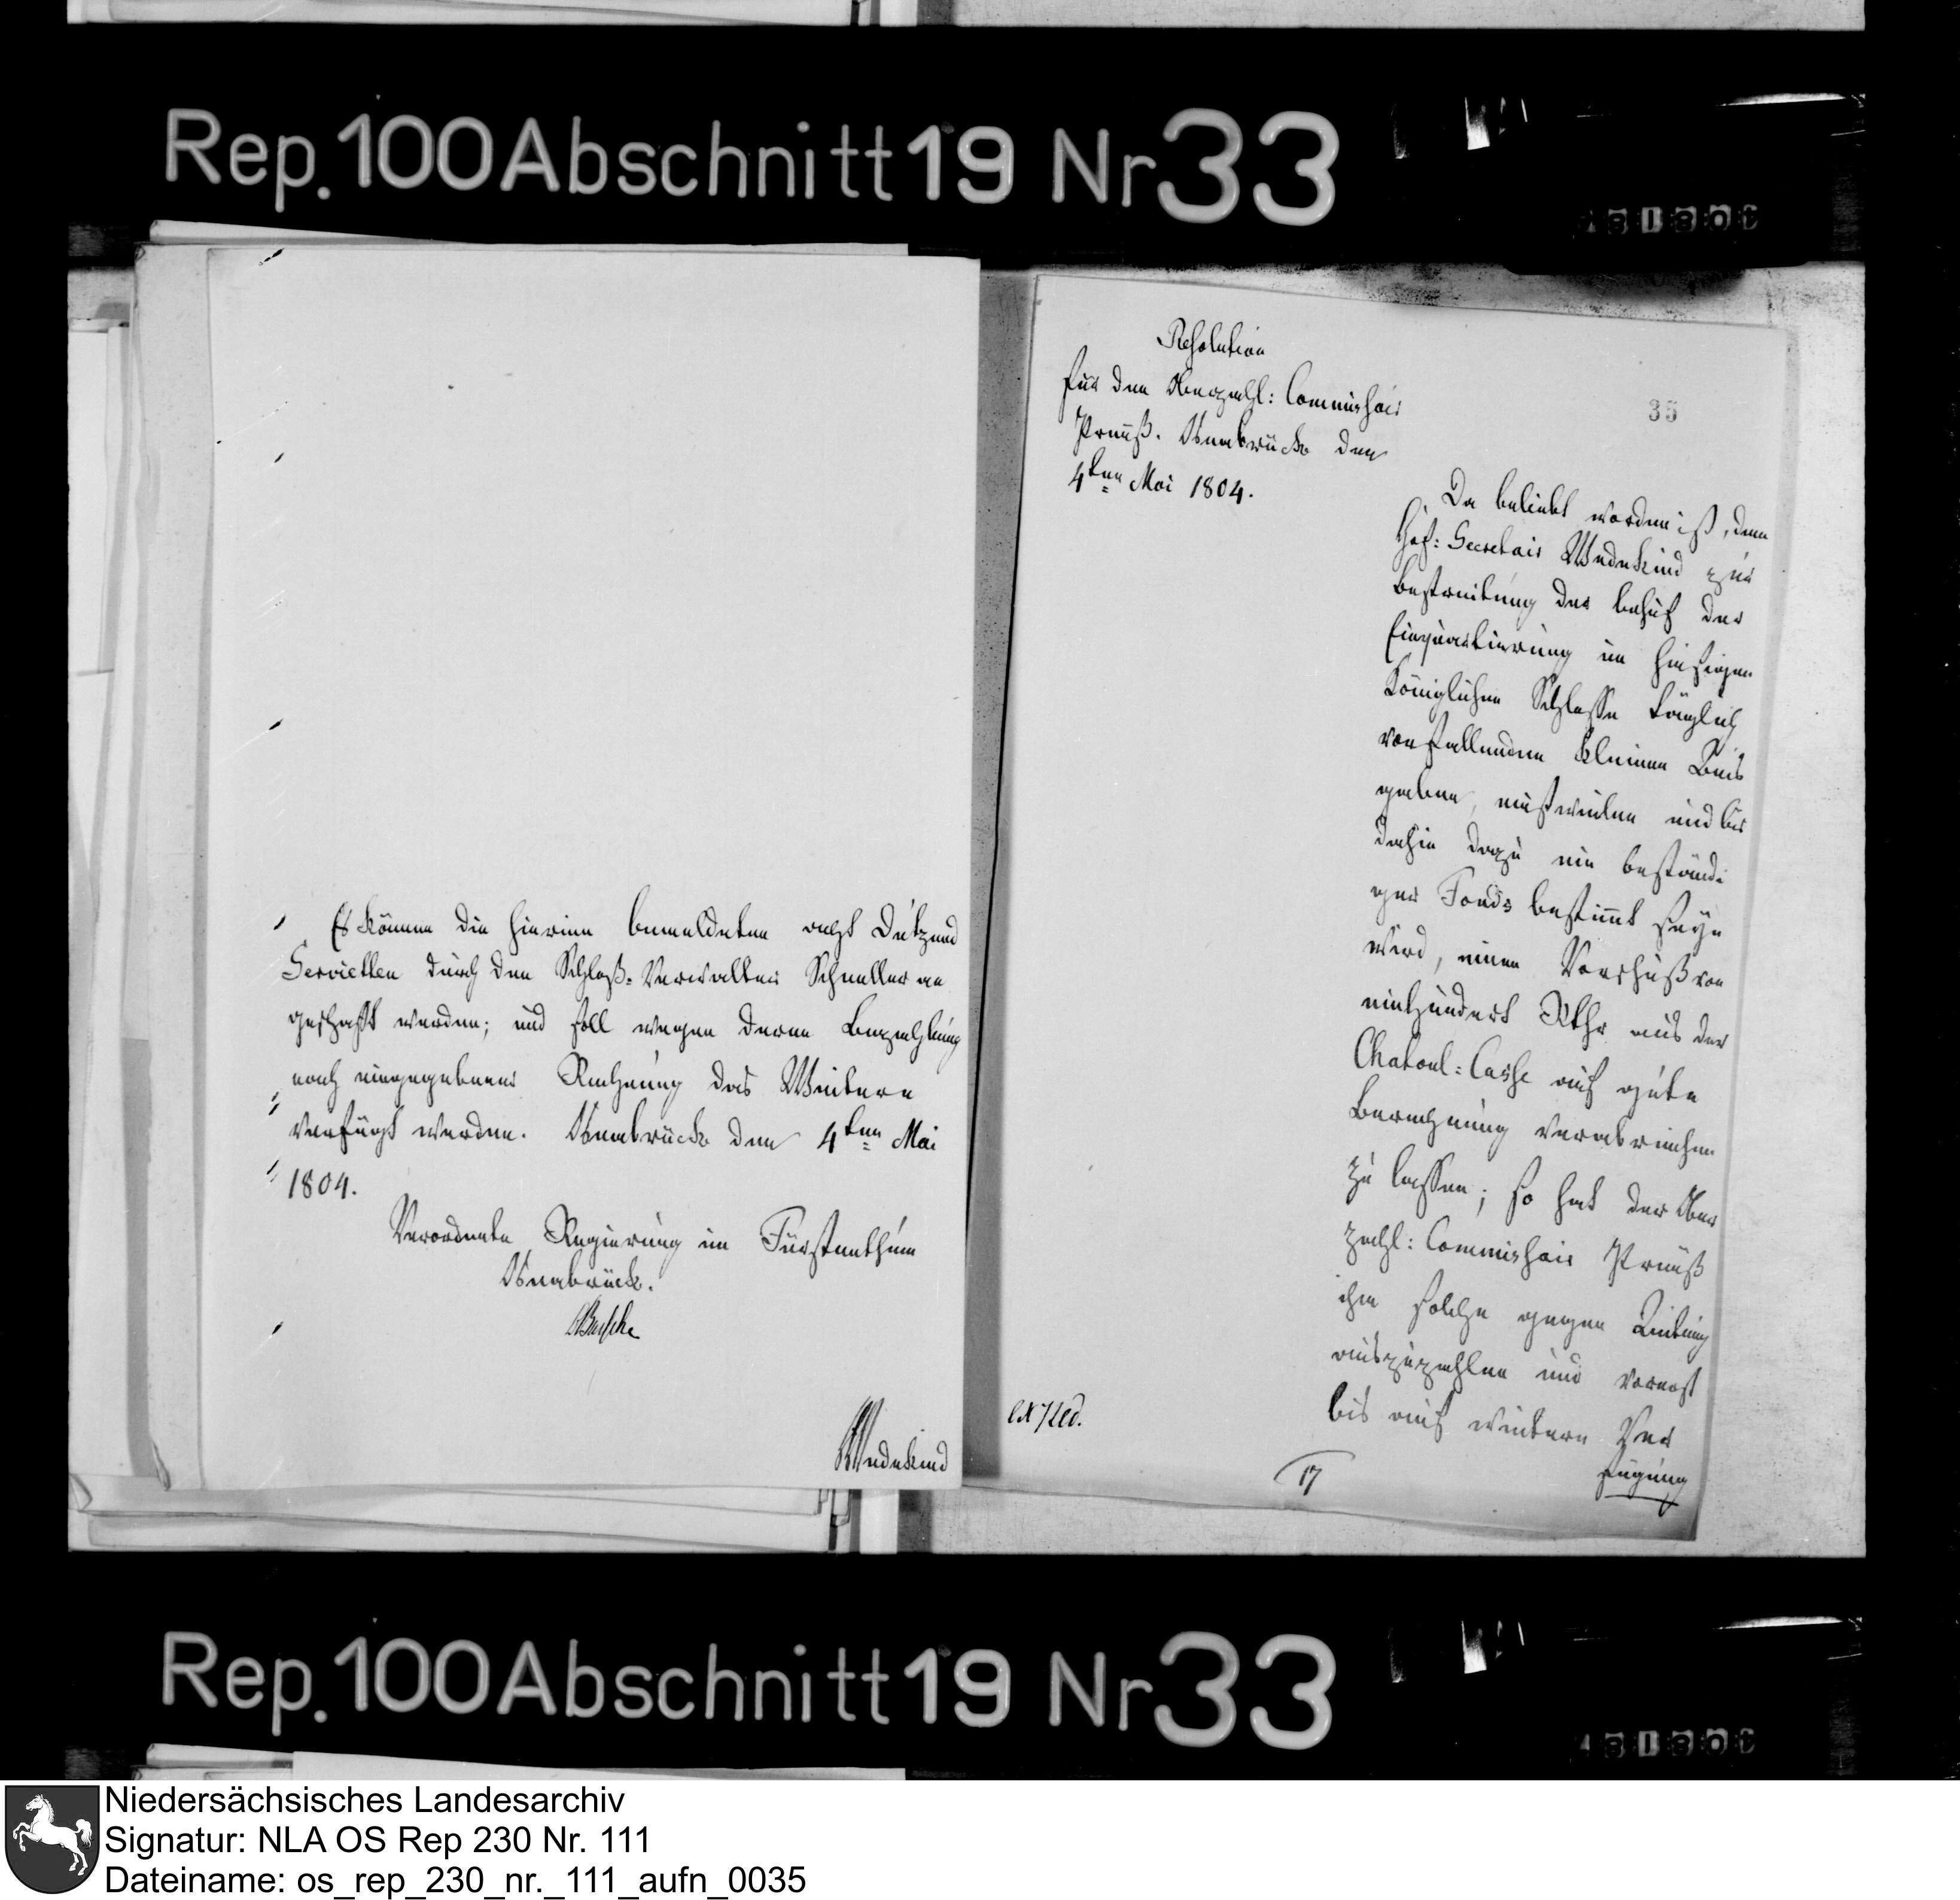 Rep. 100 Abschnitt 19 Nr 33
Es können die hierinn bemeldeten acht Dutzend
Servietten durch den Schloß-Verwalter Schneller an
geschafft werden; und soll wegen deren Bezahlung
nach eingegebener Rechnung das Weitere
verfügt werden. Osnabrück den 4ten Mai
1804.
Verordnete Regierung im Fürstenthum
Osnabrück.
Busche
Wedekind
35
Resolution
für den Oberzahl: Commissair
Preuß. Osnabrück den
4ten Mai 1804.
Da beliebt worden ist, dem
Hof: Secretair Wedekind zur
Bestreitung der behuf der
Einquartierung im hiesigen
Königlichen Schlosse täglich
vorfallenden kleinen Aus
gaben, einstweilen und bis
dahin dazu ein beständi
ger Fonds bestimmt seyn
wird, einen Vorschuß von
einhundert Rthr aus der
Chatoul-Casse auf gute
Berechnung verabreichen
zu lassen; so hat der Ober
zahl: Commissair Preuß
ihm solche gegen Quitung
auszuzahlen und vorerst
bis auf weitere Ver
fügung
exped.
17
Rep. 100 Abschnitt 19 Nr 33
Niedersächsisches Landesarchiv
Signatur: NLA OS Rep 230 Nr. 111
Dateiname: os_rep_230_nr._111_aufn_0035